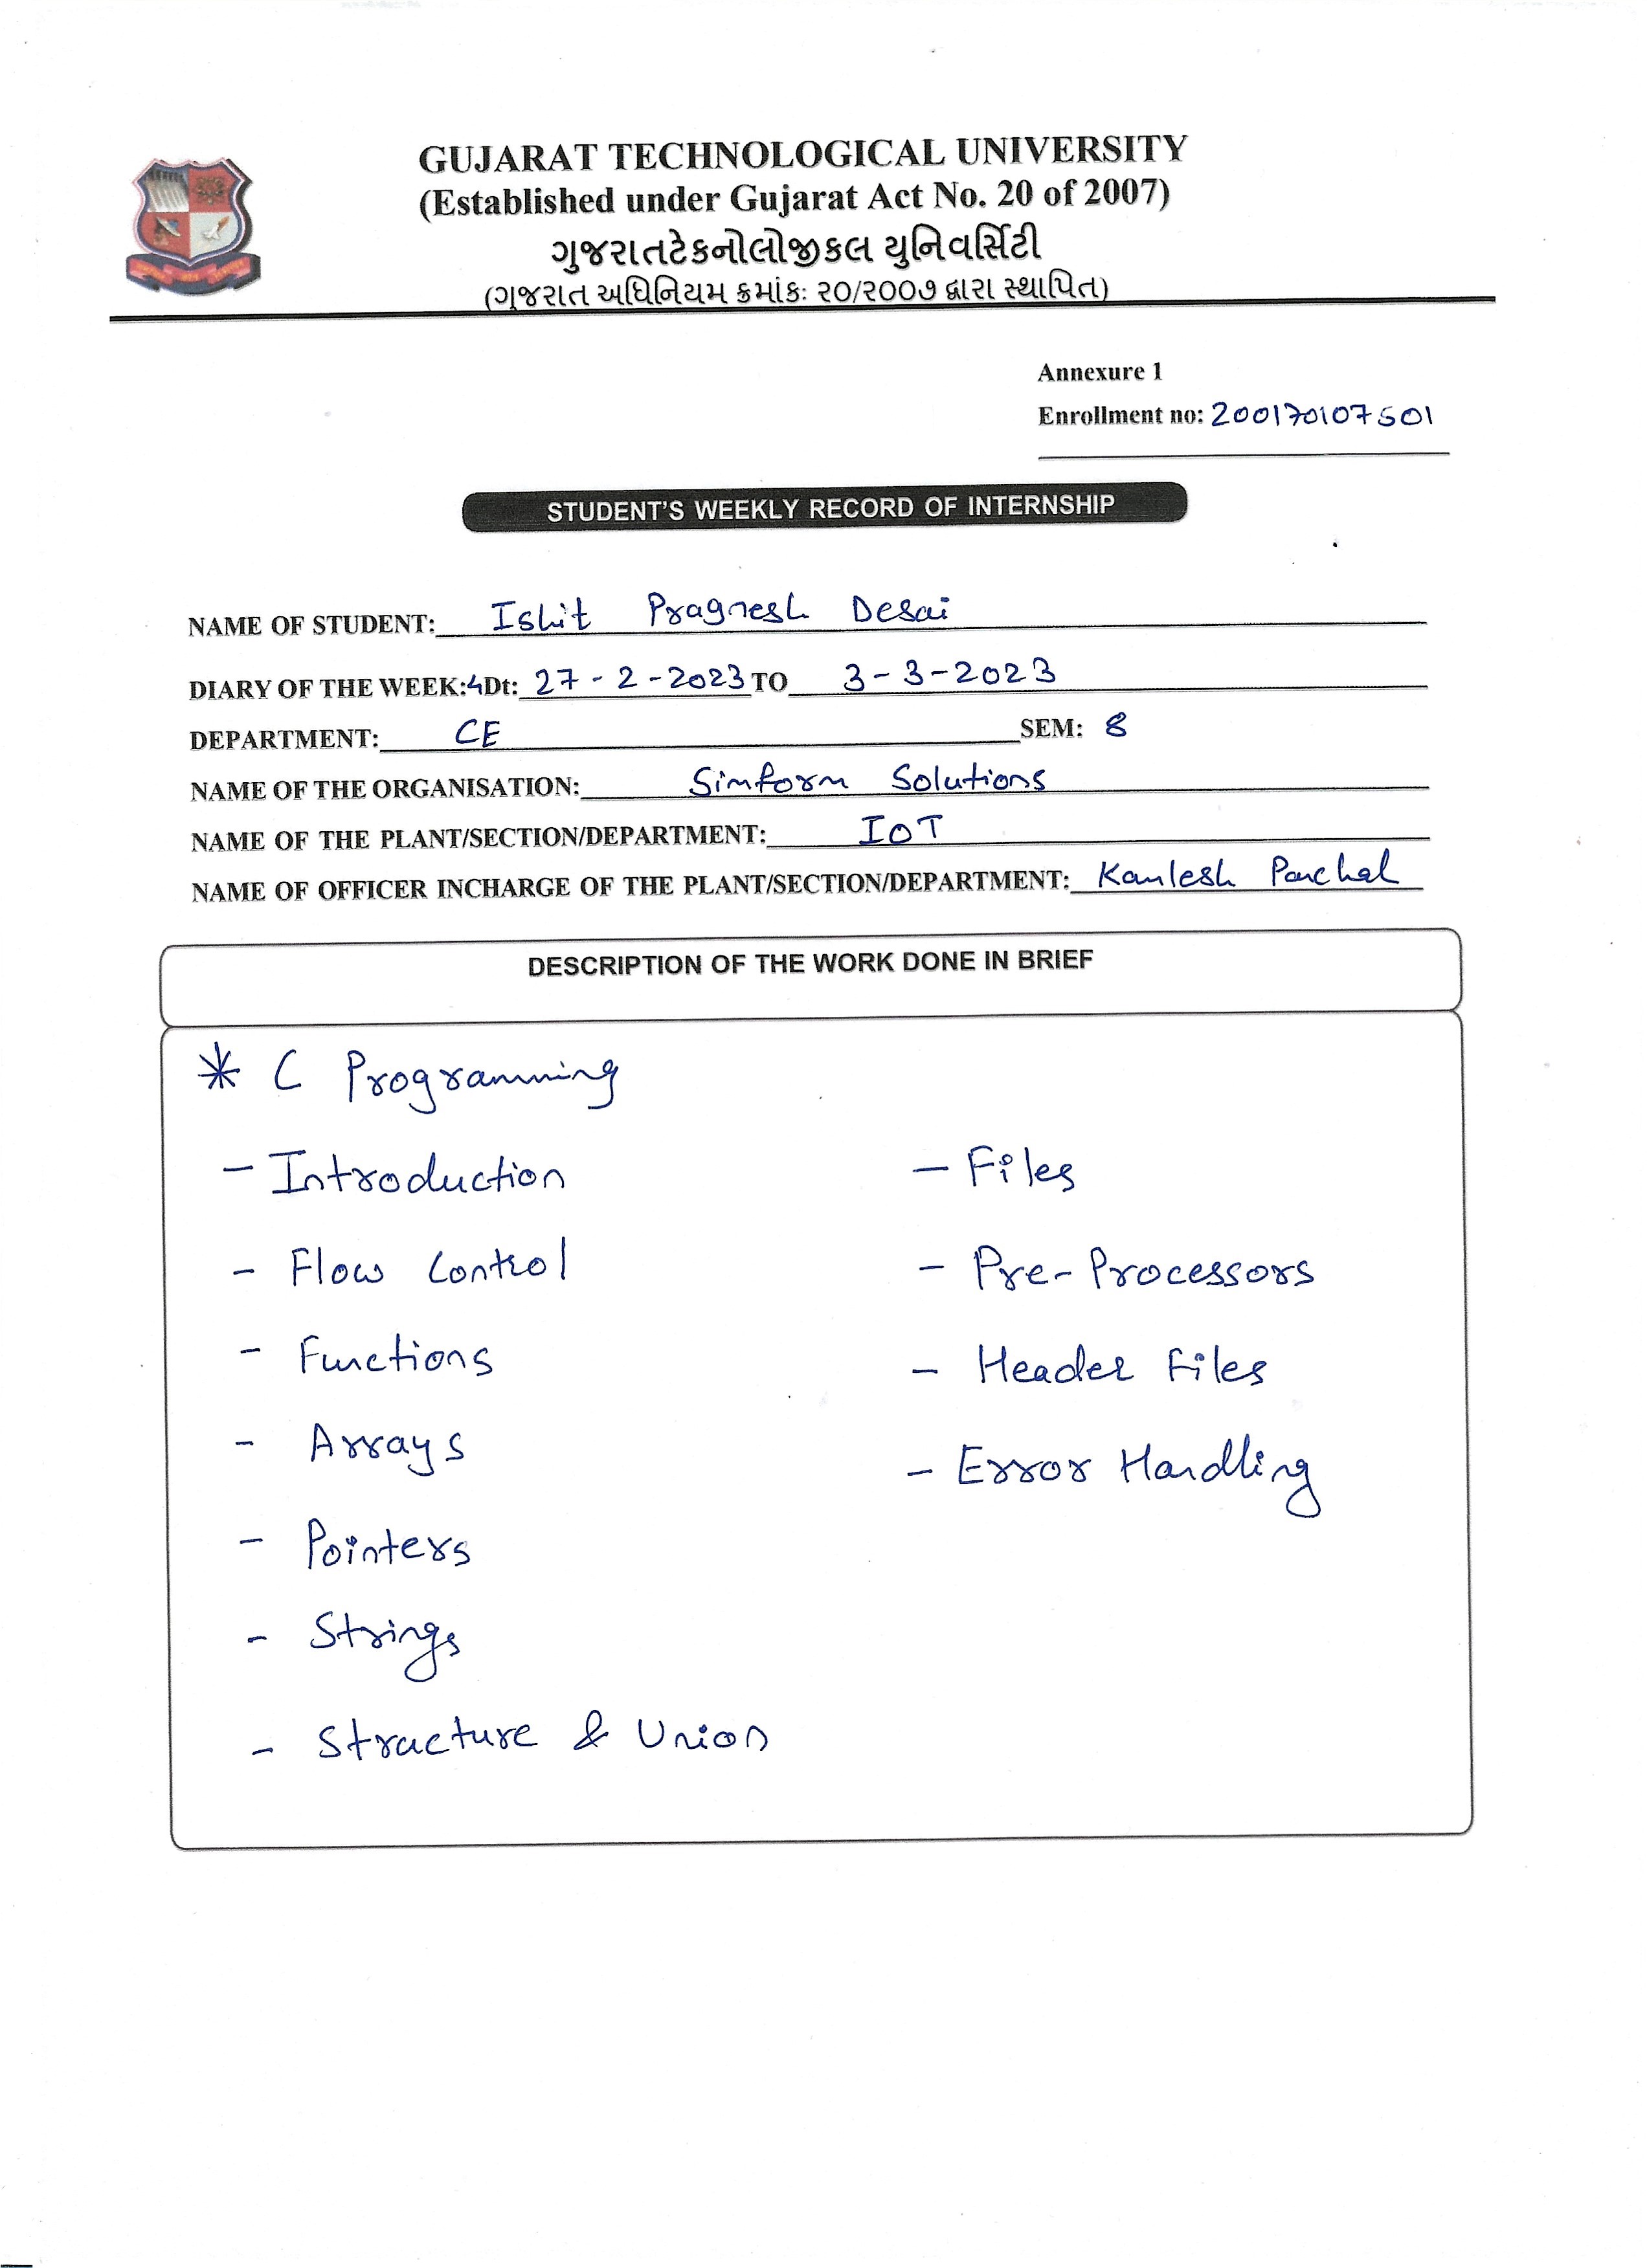 GUJARAT TECHNOLOGICAL UNIVERSITY
(Established under Gujarat Act No. 20 of 2007)
ગુજરાતટેકનોલોજીકલ યુનિવર્સિટી
(ગુજરાત અધિનિયમ ક્રમાંકઃ ૨૦/૨૦૦૭ દ્વારા સ્થાપિત)
Annexure 1
Enrollment no: 200170107501
STUDENT'S WEEKLY RECORD OF INTERNSHIP
NAME OF STUDENT: Ishit Pragnesh Desai
DIARY OF THE WEEK:4Dt: 27 - 2 - 2023 TO 3 - 3 - 2023
DEPARTMENT: CE SEM: 8
NAME OF THE ORGANISATION: Simform Solutions
NAME OF THE PLANT/SECTION/DEPARTMENT: IOT
NAME OF OFFICER INCHARGE OF THE PLANT/SECTION/DEPARTMENT: Kamlesh Panchal
DESCRIPTION OF THE WORK DONE IN BRIEF
* C Programming
- Introduction
- Flow Control
- Functions
- Arrays
- Pointers
- Strings
- Structure & Union
- Files
- Pre-Processors
- Header Files
- Error Handling